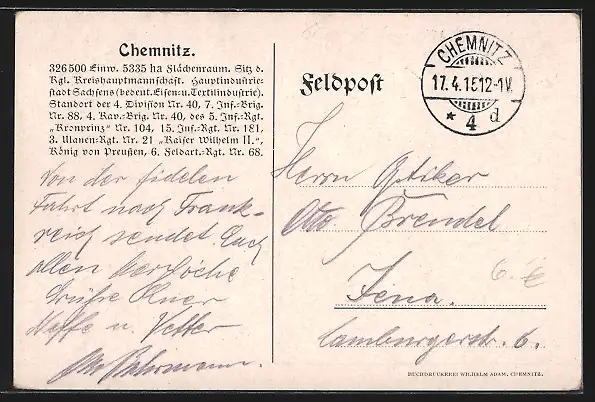 Chemnitz.
326500 Einw. 5335 ha Flächenraum. Sitz d.
Kgl. Kreishauptmannschaft. Hauptindustrie-
stadt Sachsens (bedeut. Eisen- u. Textilindustrie).
Standort der 4. Division Nr. 40, 7. Inf.-Brig.
Nr. 88, 4. Kav.-Brig. Nr. 40, des 5. Inf.-Rgt.
„Kronprinz" Nr. 104, 15. Inf.-Rgt. Nr. 181,
3. Ulanen-Rgt. Nr. 21 „Kaiser Wilhelm II.",
König von Preußen, 6. Feldart.-Rgt. Nr. 68.
Von der fidelen
Fahrt nach Frank-
reich sendet Euch
allen herzliche
Grüße Euer
Neffe u. Vetter
Otto
Feldpost
CHEMNITZ
17.4.15.12-1V.
* 4 d
Herrn Optiker
Otto Brendel
Jena.
Camburgerstr. 6.
6.-€
BUCHDRUCKEREI WILHELM ADAM, CHEMNITZ.